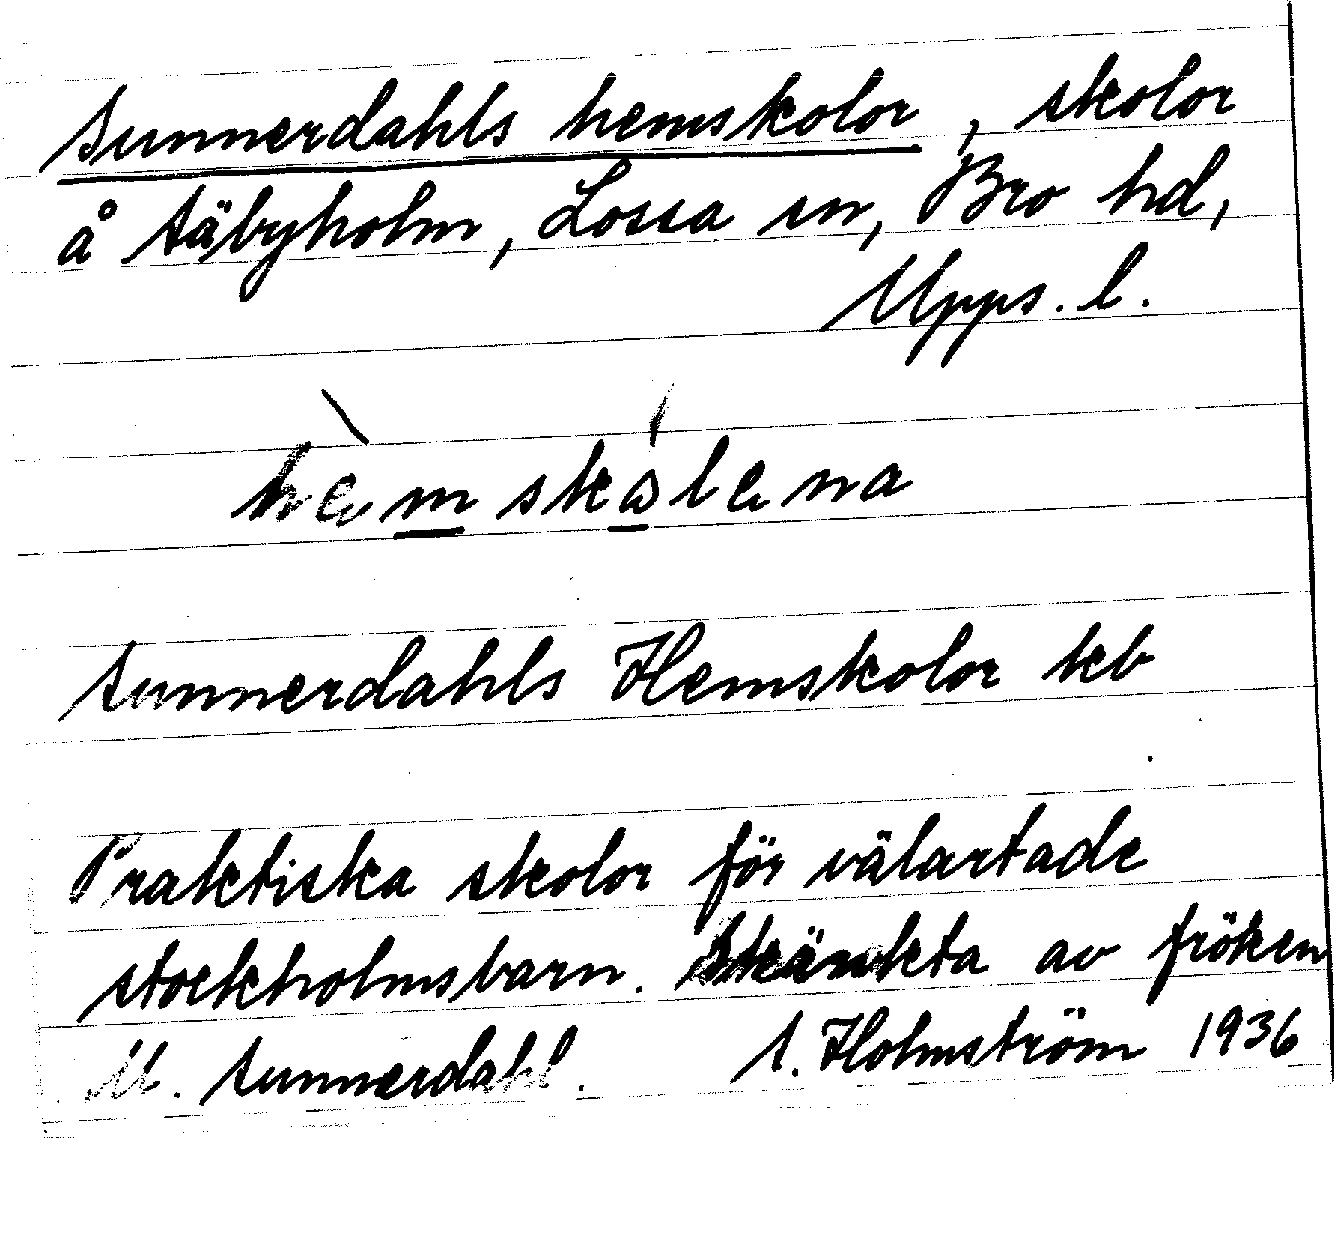 Sunnerdahls hemskolor, skolor
å Täbyholm, Lossa sn, Bro hd,
Upps. l.
hemskolena
Sunnerdahls Hemskolor keb
Praktiska skolor för välartade
stockholmsbarn. Skänkta av fröken
M. Sunnerdahl. S. Holmström 1936